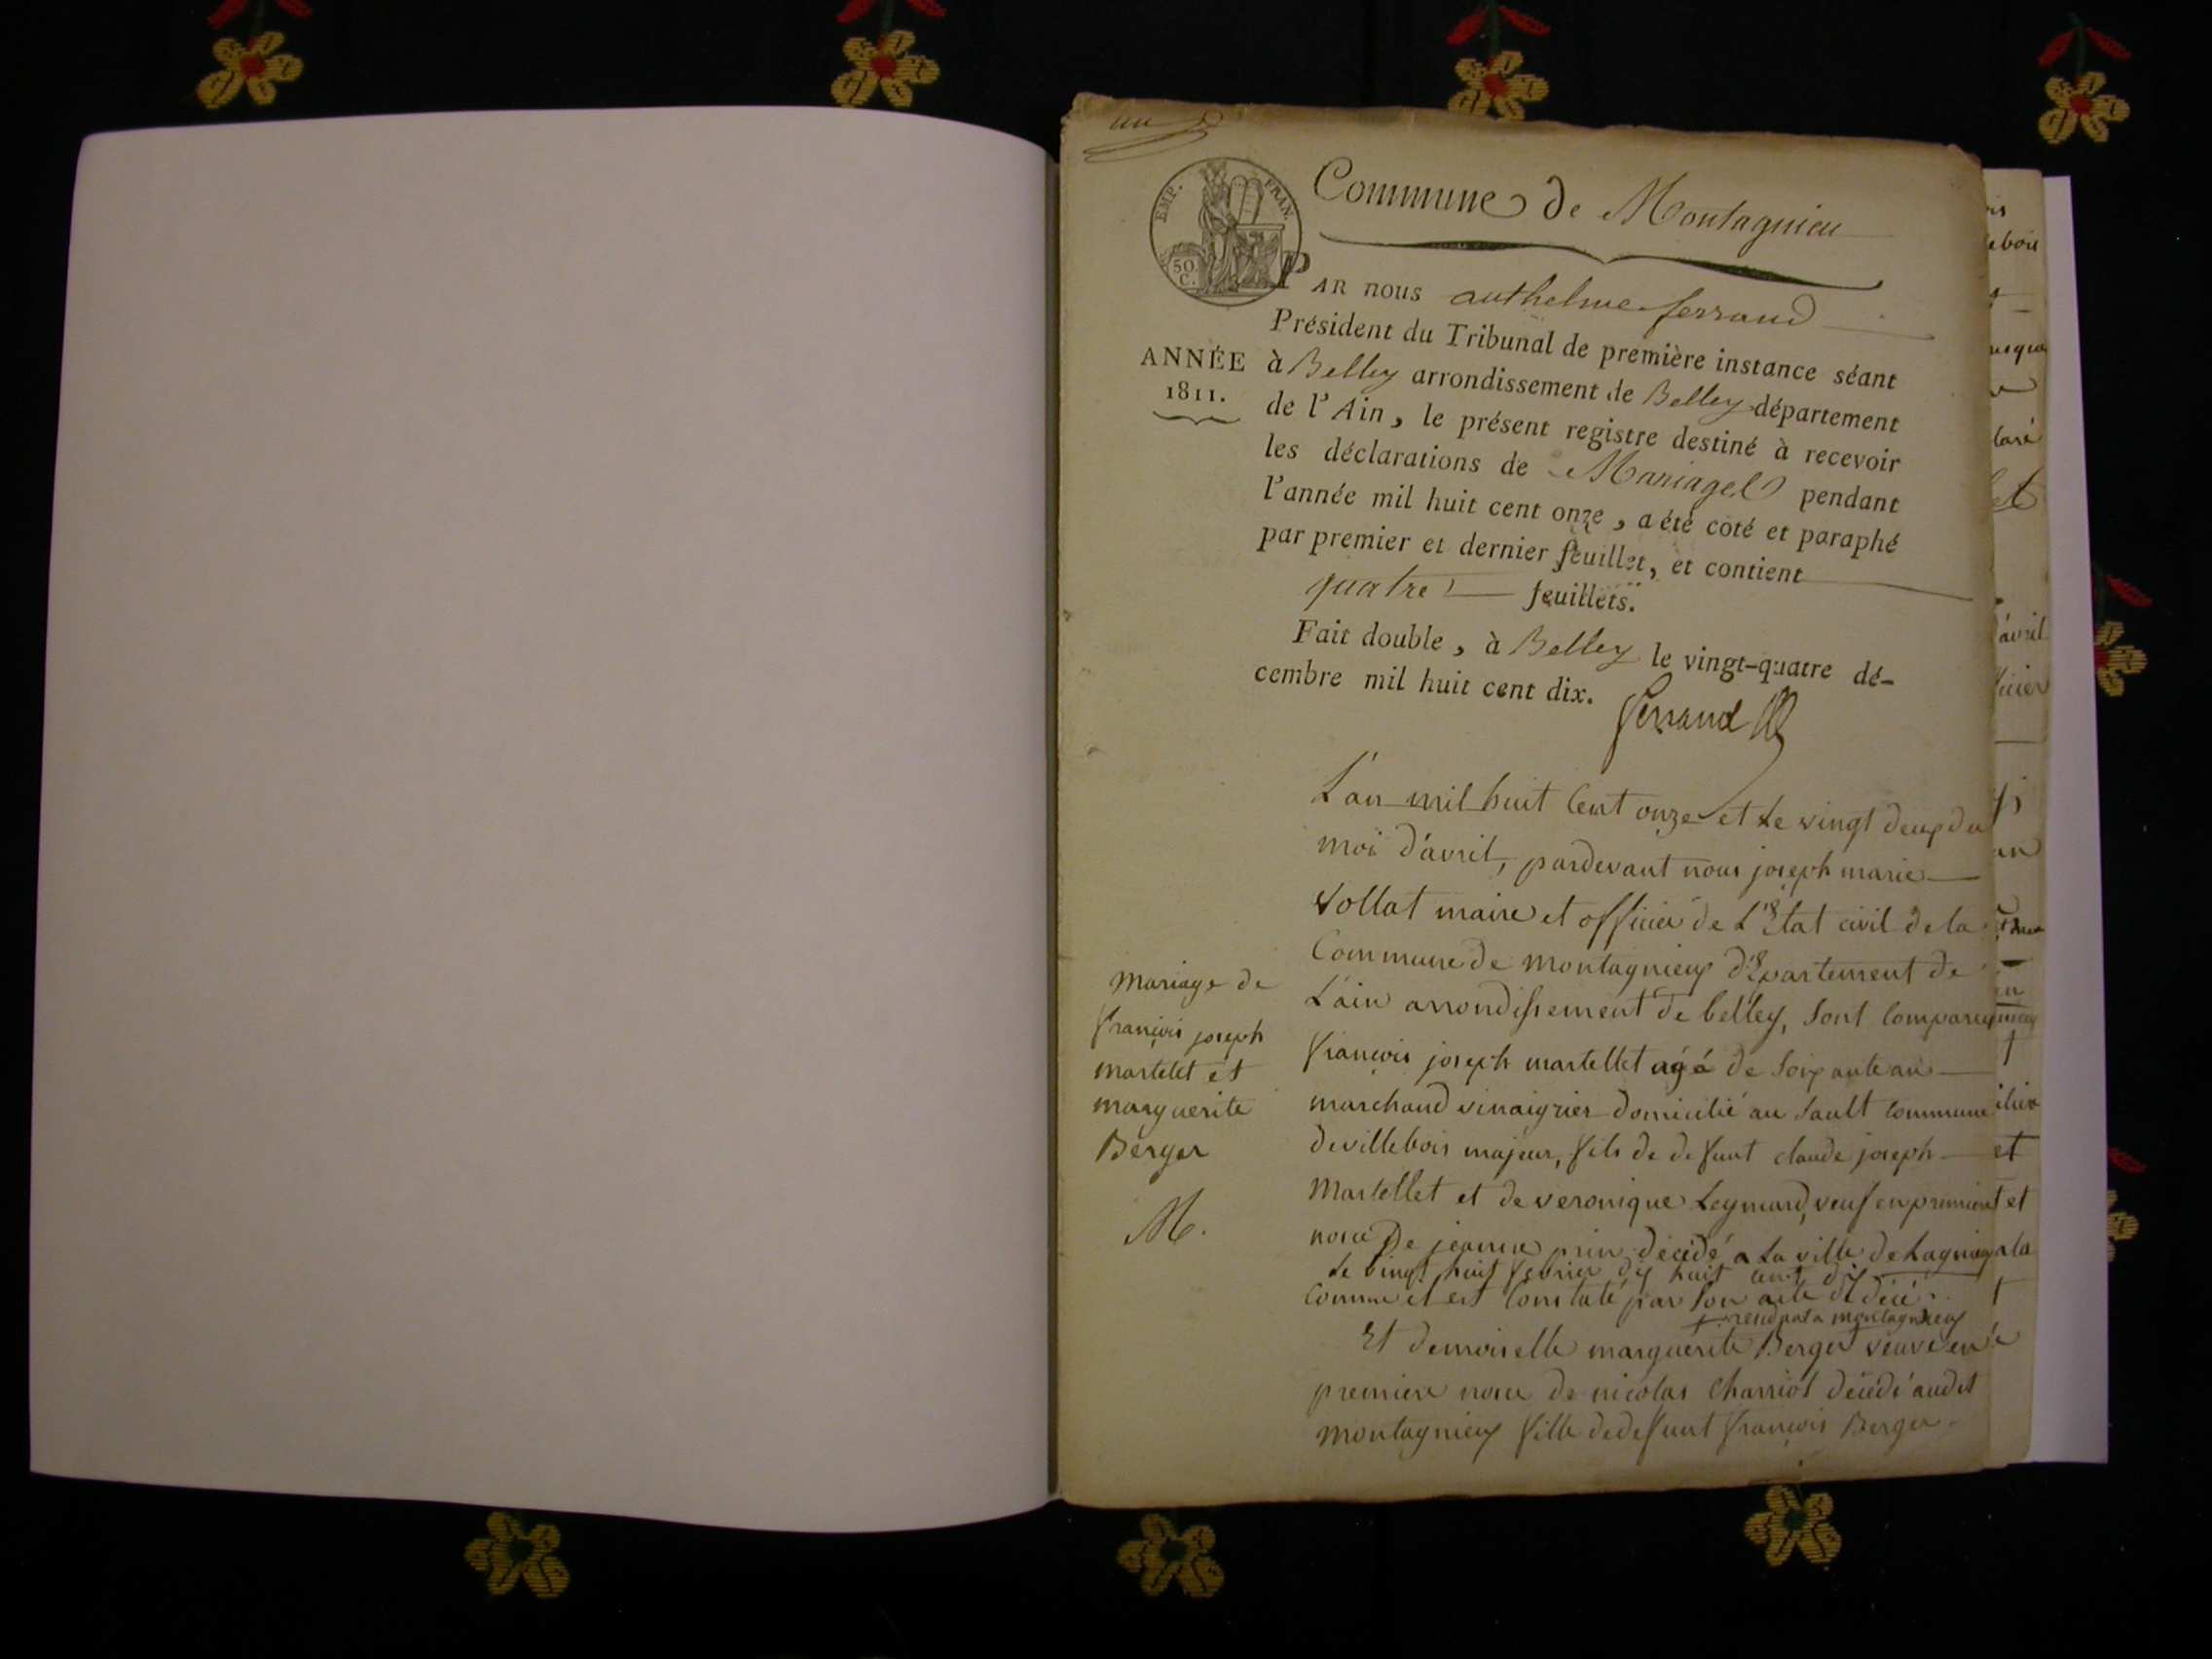 un
Commune de Montagnieu
EMP. FRAN.
50 C.
PAR nous anthelme ferrand
Président du Tribunal de première instance séant
ANNÉE 1811.
à Belley arrondissement de Belley département
de l'Ain, le présent registre destiné à recevoir
les déclarations de Mariages pendant
l'année mil huit cent onze, a été coté et paraphé
par premier et dernier feuillet, et contient
quatre feuillets.
Fait double, à Belley le vingt-quatre dé-
cembre mil huit cent dix.
ferrand
L'an mil huit Cent onze et le vingt deux du
moi d'avril, pardevant nous joseph marie
Vollat maire et officier de L'Etat civil de la
Commune de montagnieux département de
L'ain arrondissement de belley, Sont Comparu
françois joseph martellet agé de Soixante an
marchand vinaigrier domicilié au Sault Commune
de villebois majeur, fils de defunt claude joseph
Martellet et de veronique Leymard, veuf en premiere
noce De jeanne prin décédé a La ville de Lagnieu
le vingt huit fevrier dix huit cent dix
Comme il est Constaté par Son acte de décé
residant a montagnieux
Et demoiselle marguerite Berger veuve en
premiere noce de nicolas Charriot décédé audit
montagnieux fille de defunt françois Berger
mariage de
françois joseph
martelet et
marguerite
Berger
M.